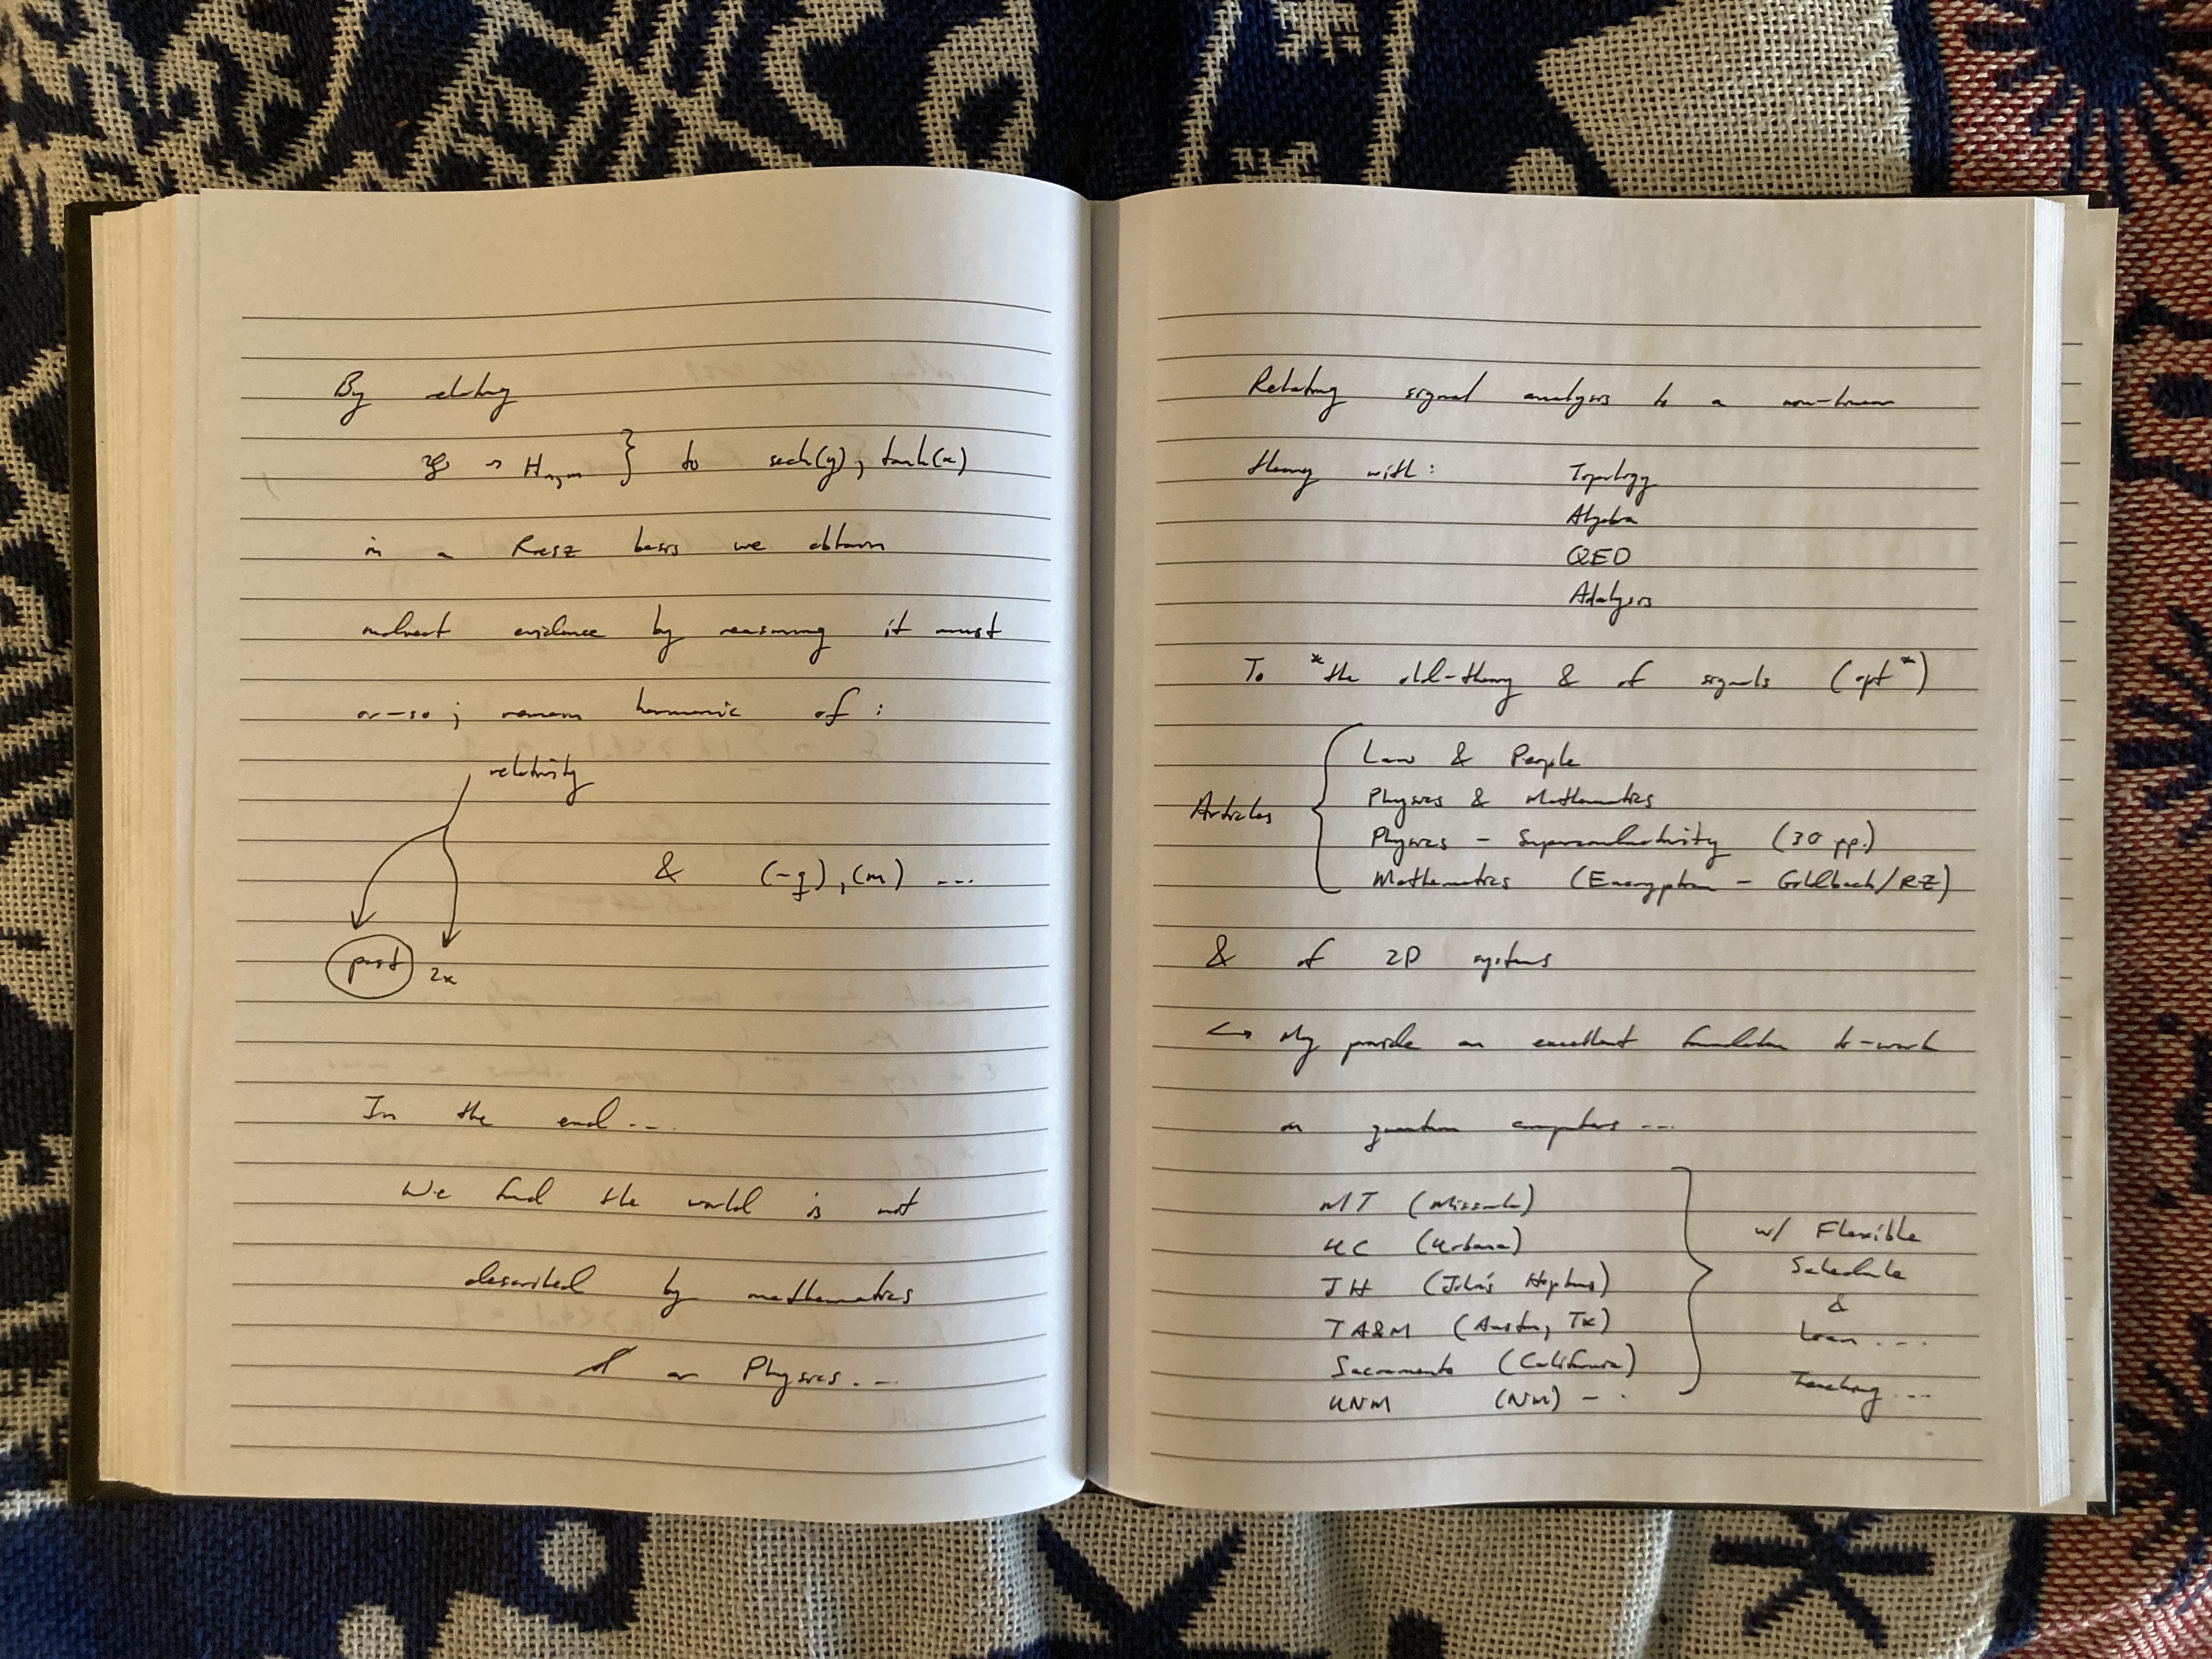 By relating
→ Hn,m } to sech(y), tanh(x)
in a Riesz basis we obtain
indirect evidence by reasoning it must
or-so; remain harmonic of:
relativity
& (-q), (m) ...
past 2x
In the end ...
We find the world is not
described by mathematics
or Physics ...
Relating signal analysis to a non-linear
theory with: Topology
Algebra
QED
Analysis
To *the old-theory & of signals (opt*)
Law & People
Articles { Physics & Mathematics
Physics - Superconductivity (30 pp.)
Mathematics (Encryption - Goldbach/RZ)
& of 2D systems
↪ May provide an excellent foundation to-work
on quantum computers ...
MT (Missoula)
UC (Urbana)
JH (John's Hopkins)
TA&M (Austin, Tx)
Sacramento (California)
UNM (NM) - .
w/ Flexible
Schedule
&
Loan ...
Teaching ...